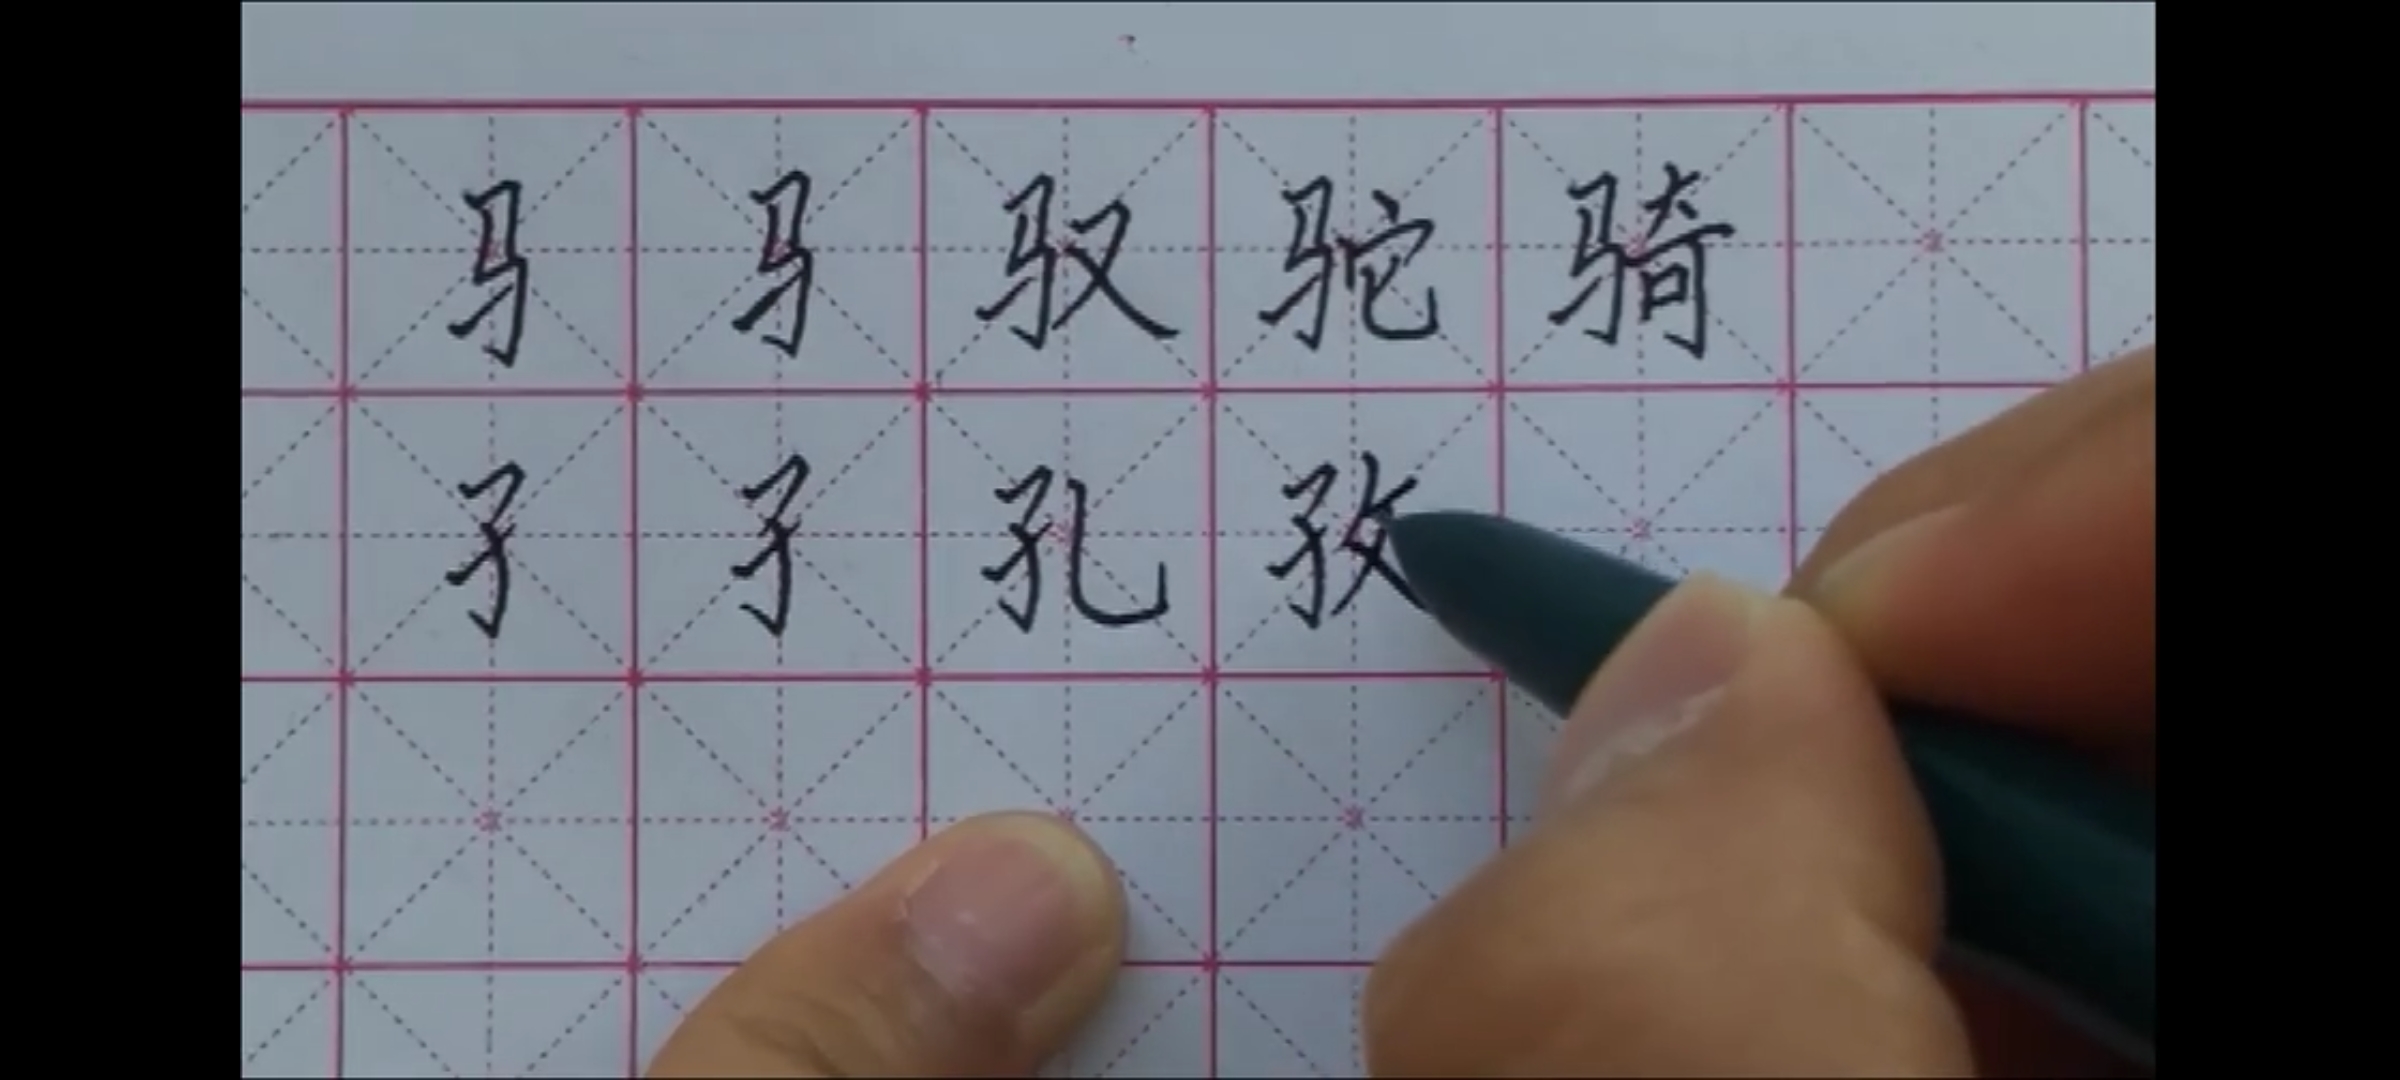 马 马 驭 驼 骑
子 子 孔 孜